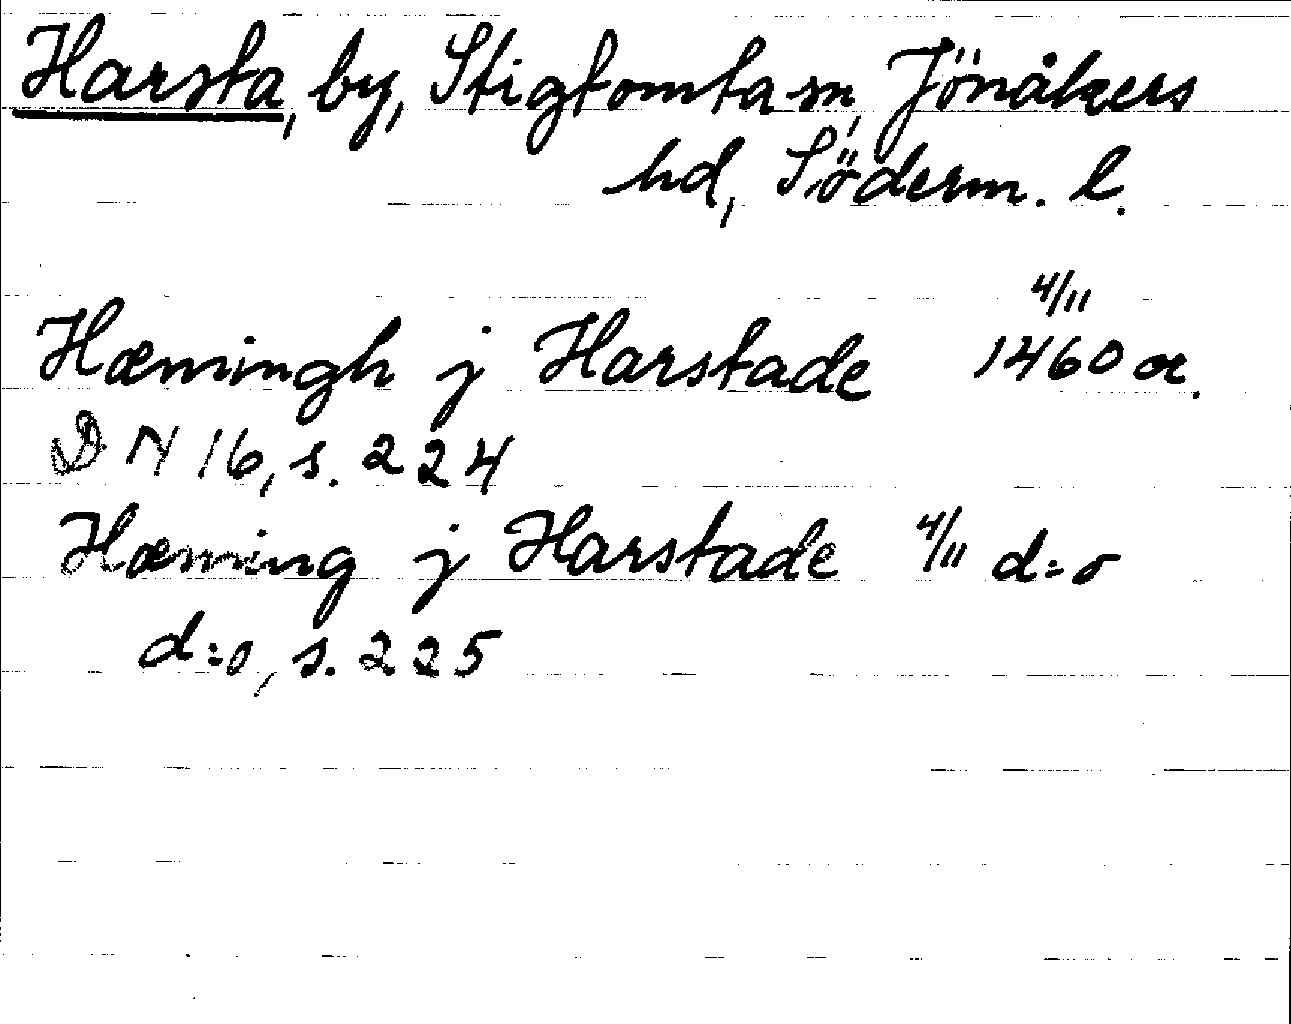 Harsta, by, Stigtomta sn, Jönåkers
hd, Söderm. l.
4/11
Hæmingh j Harstade 1460 or.
DN 16, s. 224
Hæming j Harstade 4/11 d:o
d:o, s. 225